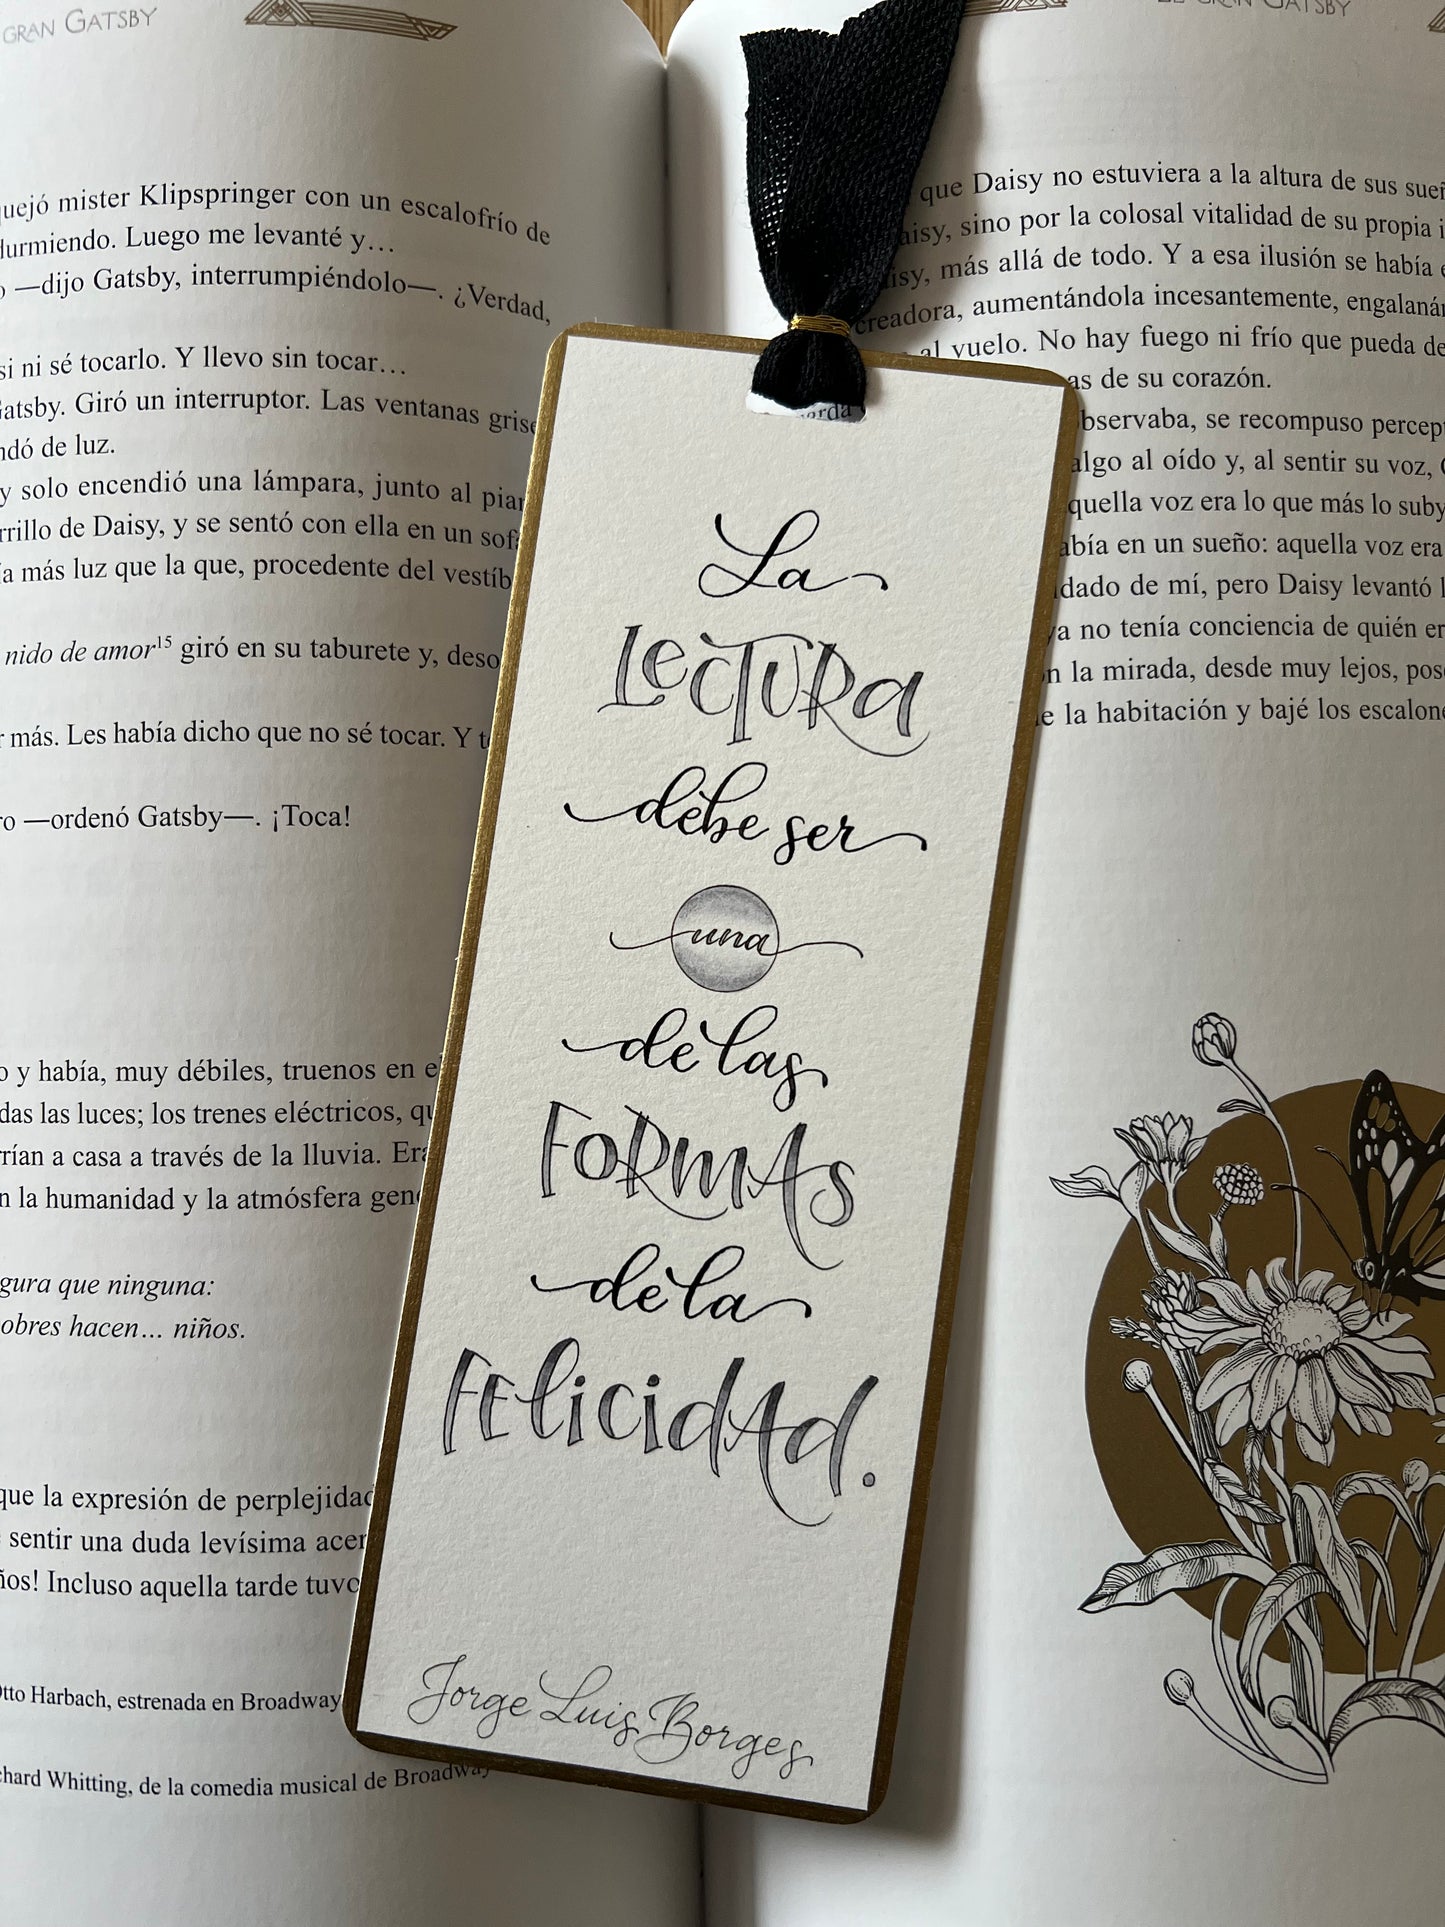 GRAN GATSBY
quejó mister Klipspringer con un escalofrío de
durmiendo. Luego me levanté y…
—dijo Gatsby, interrumpiéndolo—. ¿Verdad,
si ni sé tocarlo. Y llevo sin tocar…
Gatsby. Giró un interruptor. Las ventanas
de luz.
y solo encendió una lámpara, junto al
de Daisy, y se sentó con ella en un
más luz que la que, procedente del
nido de amor¹⁵ giró en su taburete y,
más. Les había dicho que no sé tocar. Y
—ordenó Gatsby—. ¡Toca!
y había, muy débiles, truenos en
las luces; los trenes eléctricos,
a casa a través de la lluvia.
la humanidad y la atmósfera
que ninguna:
hacen… niños.
que la expresión de
sentir una duda levísima
Incluso aquella tarde
Otto Harbach, estrenada en Broadway
Whitting, de la comedia musical de Broadway
La
Lectura
debe ser
una
de las
Formas
de la
Felicidad.
Jorge Luis Borges
GATSBY
que Daisy no estuviera a la altura de sus
Daisy, sino por la colosal vitalidad de su propia
más allá de todo. Y a esa ilusión se había
creadora, aumentándola incesantemente,
al vuelo. No hay fuego ni frío que pueda
de su corazón.
observaba, se recompuso
algo al oído y, al sentir su voz,
aquella voz era lo que más lo
en un sueño: aquella voz era
de mí, pero Daisy levantó
ya no tenía conciencia de quién
la mirada, desde muy lejos,
la habitación y bajé los